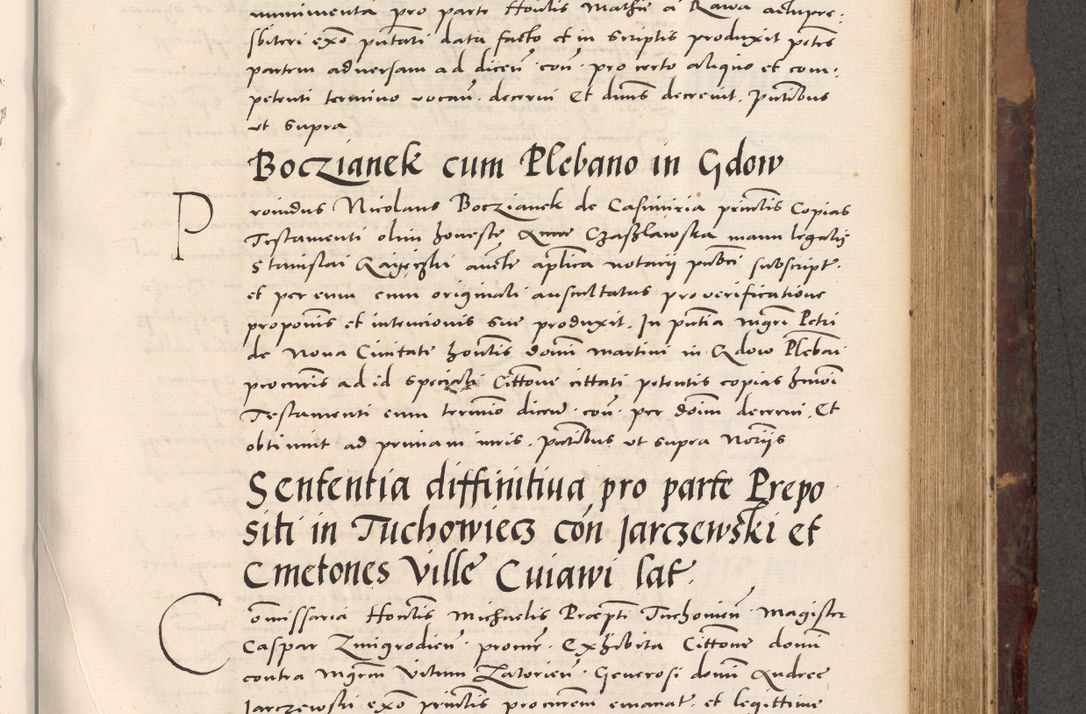 munimenta pro parte Hon̄tis Mathie a Rawa altūpre:
sbiteri exō putati data facto et in scriptis produxit poten̄
partem adversam ad dicen̄ con̄ pro certo aliquo et com:
petenti termino vocan̄. decerni Et dūus decrevit. Pn̄tibus
ut supra
Boczianek cum Plebano in Gdow
Providus Nicolaus Boczianek de Casimiria prin̄tis Copias
Testamenti olim honeste Anne Czaszlawska manu legalis
Stanislai auc̄te ap̄lica notarii pub̄ci subscript.
et per eum cum originali auscultatus pro verificatione
propon̄is et intencionis sue produxit. In pn̄tia mgr̄i Petri
de Nova Civitate hon̄tis domī Martini in Gdow Plebāi
procur̄is ad id specialr̄ Cittone cittati petentis copias hmōi
Testamenti eum termīo dicen̄ con̄ per dōim decerni. Et
obtinuit ad primam iuris. Pn̄tibus ut supra Nor̄iis
Sententia diffinitiva pro parte Prepo
siti in Tuchowiecz cōn Jarczewski et
Cmetones Ville Cuiawi lat.
Commissaria Hon̄tis Michaelis Præpti Tuchovien̄ Magister
Caspar Zmigrodien̄ procur̄ Exhibita Cittone domī
contra mgr̄m Vitum Zatorien̄ Generosi domī Andree
Jarczewski exō prin̄tis procurem emanat. et legittime